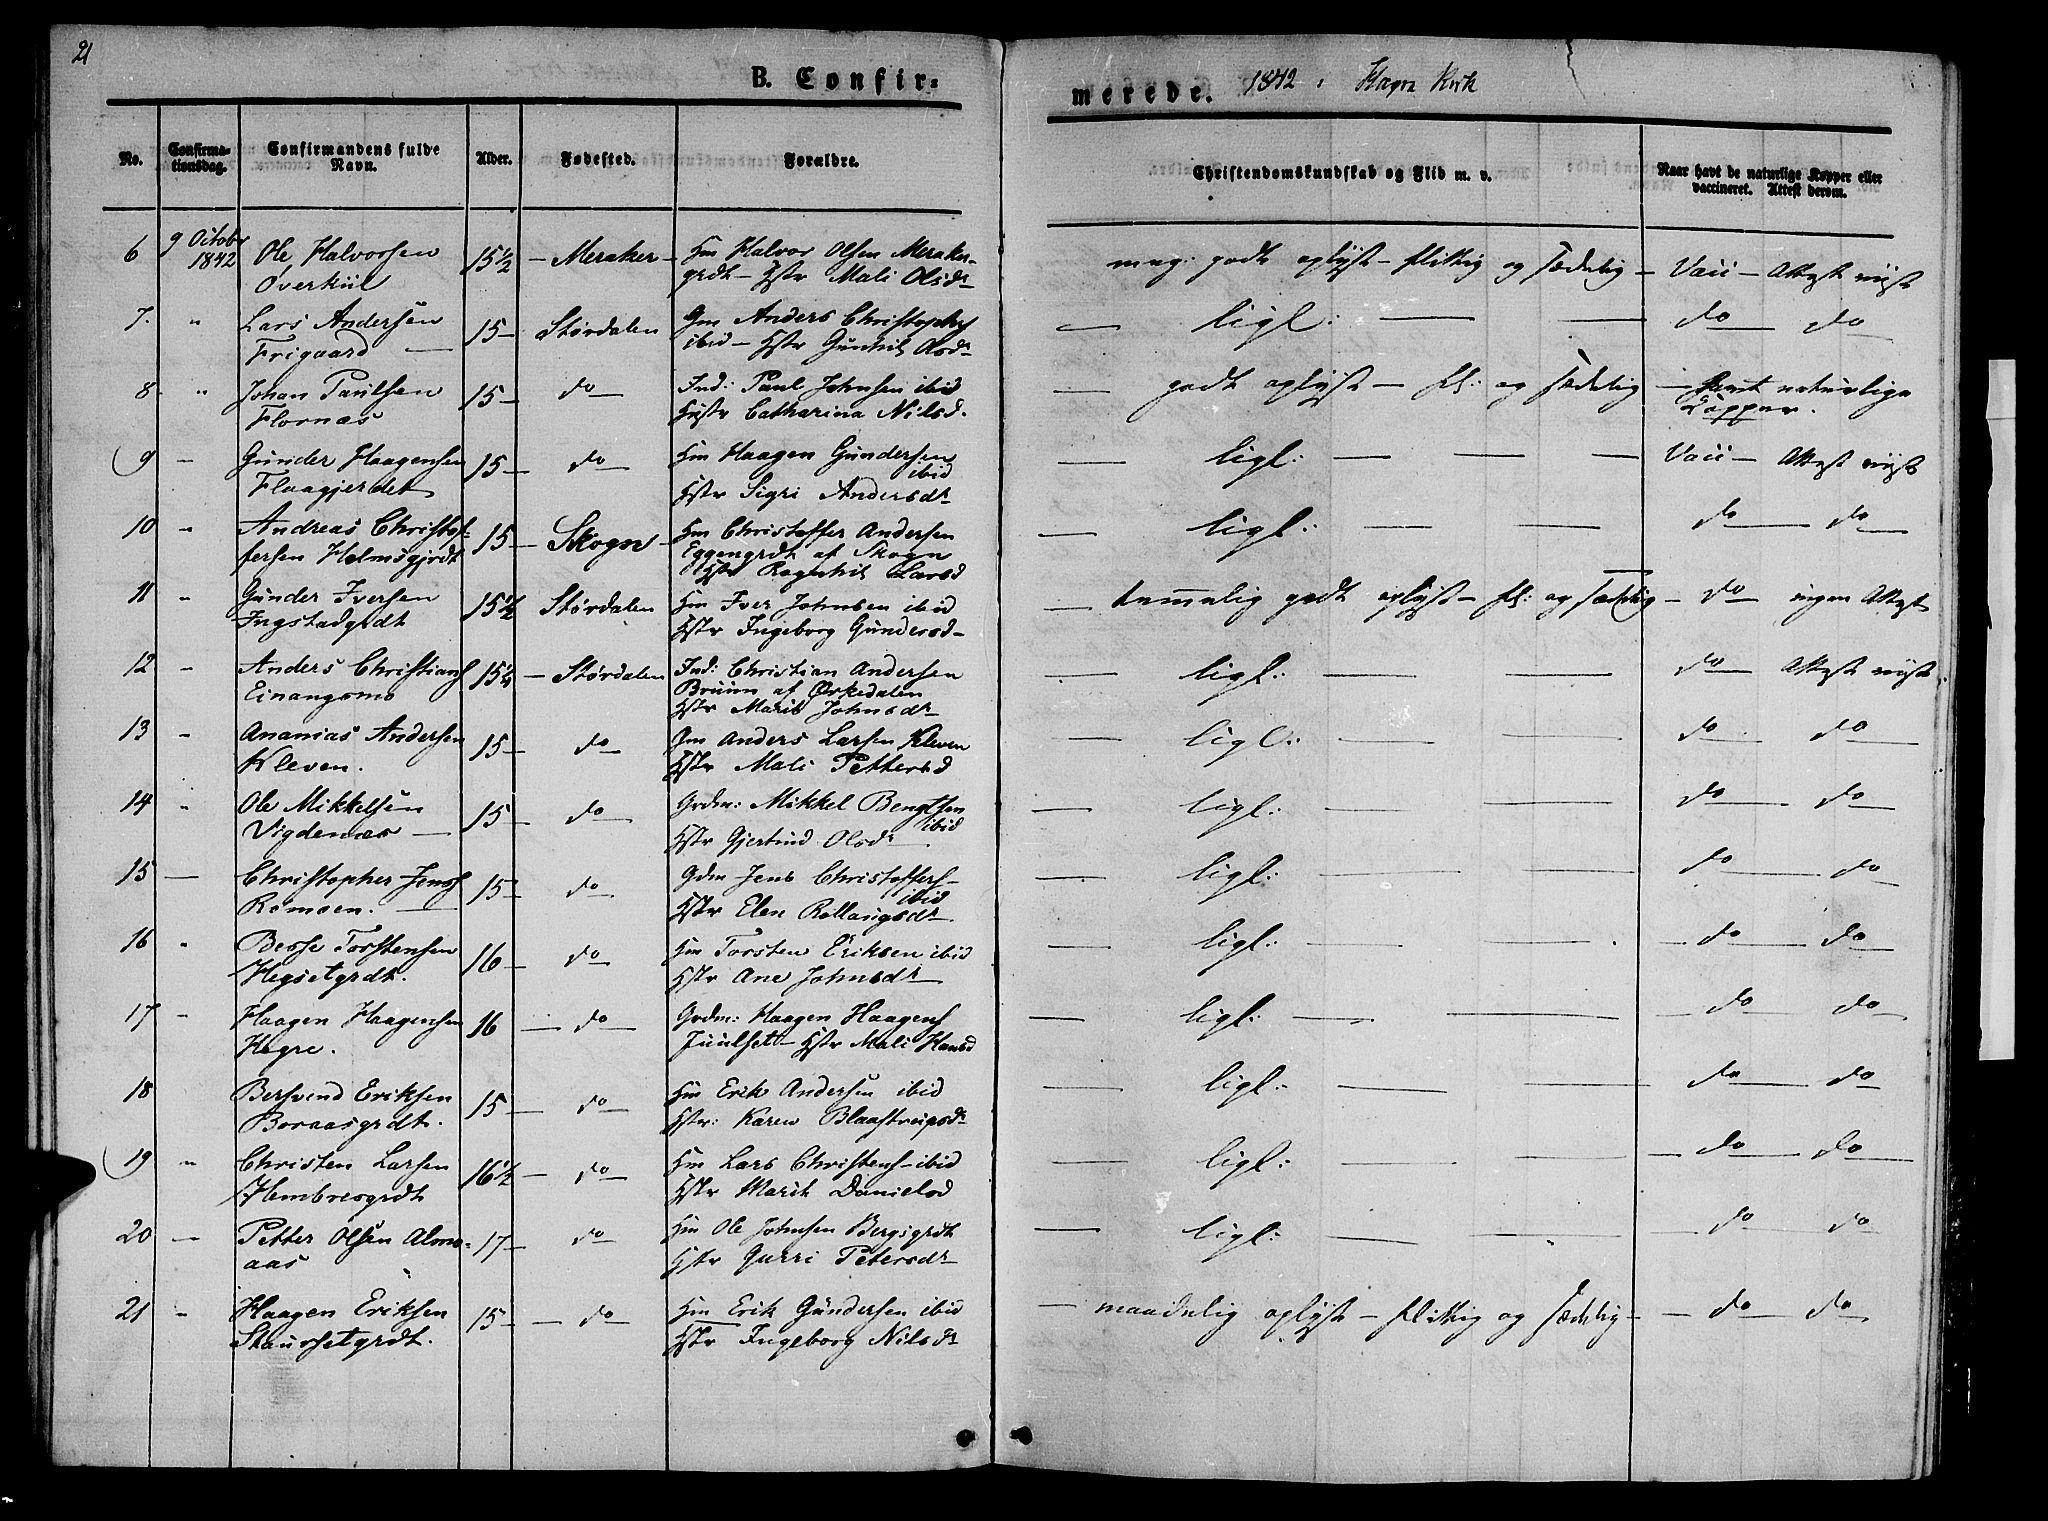 21
B. Confir-
merede. 1842 i Hegra Kirk
No. Confirma-tionsdag. Confirmandens fulde Navn. Alder. Fødested. Forældre. Christendomskundskab og Flid m. v. Naar havt de naturlige Kopper eller vaccineret. Attest derom.
6 9 Octobr 1842 Ole Halvorsen 15½ - Meraker - Hm Halvor Olsen Meraker- mag: godt oplyst - flittig og sædelig - Vacc - Attest viist
Øverkiil grdt - Hstr Mali Olsdr
7. " Lars Andersen 15 - Størdalen Gm Anders Christophs — ligl: — — do — do
Frigaard — ibid - Hstr Gunhil Olsdr
8 " Johan Paulsen 15 - do Ind: Paul Johnsen ibid — godt oplyst - fl: og sædelig - havt naturlige
Flornæs Hstr Catharina Nilsd. Kopper.
9 - Gunder Haagensen 15 - do Hm Haagen Gundersen — ligl: — — — Vacc - Attest viist
Flaagjerdet ibid
Hstr Sigri Andersdr
10 - Andreas Christof- 15 - Skogn - Hm Christoffer Andersen — ligl: — — do — do
fersen Helmsgjrdt Eggengrdt af Skogn
Hstr Ragnhil Larsd
11 " Gunder Iversen 15½ - Størdalen Hm Iver Johnsen ibid — temmelig godt oplyst - fl: og sædelig - do ingen Attest
Ingstadgrdt Hstr Ingeborg Gundersd -
12 - Anders Christians 15¼ - Størdalen Ind: Christian Andersen — ligl: — — do — Attest viist
Einangsmo Bruun af Ørkedalen
Hstr Marit Johnsdr
13 - Ananias Andersen 15 - do Gm Anders Larsen Kleven — ligl: — — do — do
Kleven. Hstr Mali Pettersd
14 " Ole Mikkelsen 15 - do Grdm: Mikkel Bengtsen — ligl: — — do — do
Vigdenæs — ibid
Hstr Gjertrud Olsdr
15 — Christopher Jens 15 - do Gdm Jens Christoffers- — ligl: — — do — do
Remoen. — ibid
Hstr Elen Rollaugsdr
16 " Besse Torstensen 16 - do Hm Torsten Eriksen ibid — ligl: — — do — do
Hegsetgrdt. Hstr Ane Johnsdr
17 - Haagen Haagensen 16 - do Grdm: Haagen Haagens — ligl: — — do do
Hegre. Juulset - Hstr Mali Hansd
18 Bersvend Eriksen 15 - do Hm Erik Andersen ibid — ligl: — — do — do
Boraasgrdt. Hstr: Karen Blaastreipsdr
19 " Christen Larsen 16½ - do Hm Lars Christens - ibid — ligl: — — do — do
Hembresgrdt Hstr Marit Danielsd
20 — Petter Olsen Almo- 17 - do Hm Ole Johnsen Bergsgrdt — ligl: — — do — do
aas Hstr Gurri Petersdr
21 " Haagen Eriksen 15 - do Hm Erik Gundersen ibid — maadelig oplyst - flittig og sædelig - do — do
Skaursetgrdt. Hstr Ingeborg Nilsdr